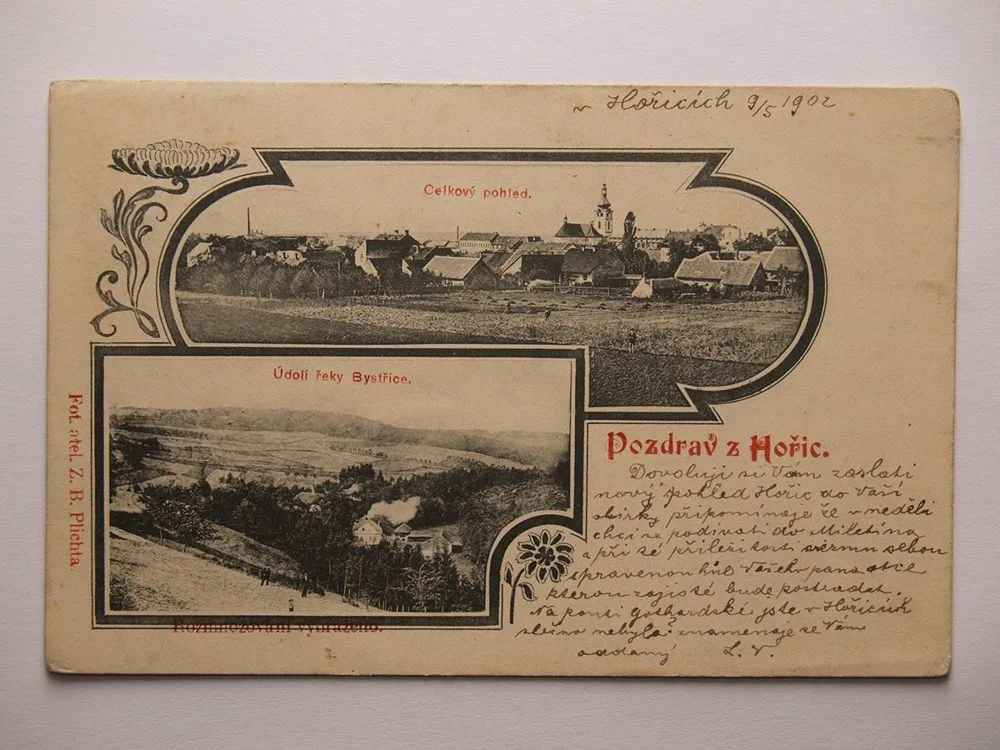 v Hořicích 9/5 1902
Celkový pohled.
Údolí řeky Bystřice.
Fot. atel. Z. B. Plichta.
Pozdrav z Hořic.
Dovoluji si Vám zaslati
nový pohled Hořic do Vaší
sbírky připomínaje že v neděli
chci se podívati do Miletína
a při té příležitosti vezmu sebou
spravenou hůl Vašeho pana otce
kterou zajisté bude postrádat.
Na pouti gothardské jste v Hořicích
slečno nebyla? znamenaje se Vám
oddaný L. V.
Rozmnožování vyhraženo.